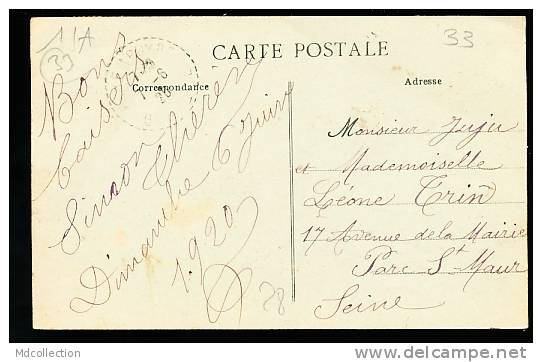 11A
33
33
CARTE POSTALE
Correspondance
Adresse
Bons
baisers
Simon Thérèse
Dimanche 6 Juin
1920
28
Monsieur Juju
et Mademoiselle
Léone Trin
17 Avenue de la Mairie
Parc St Maur
Seine
Mdcollection
delcampe.net